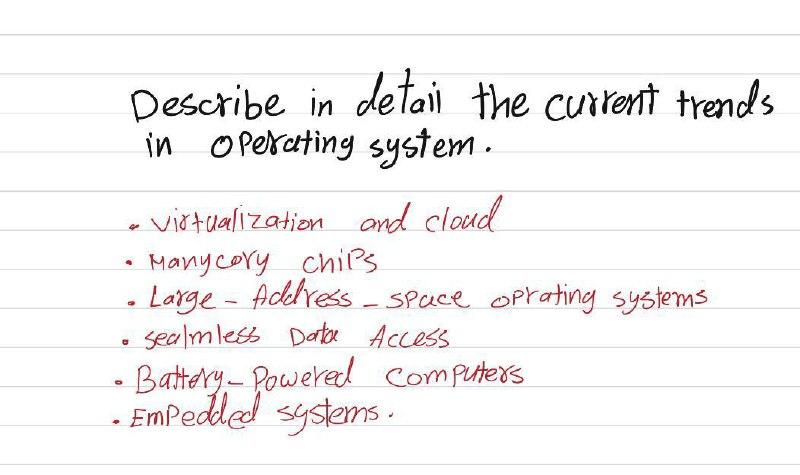 Describe in detail the current trends
in operating system.
• Virtualization and cloud
• Manycory chips
• Large - Address - space oprating systems
• sealmless Data Access
• Battery - Powered computers
• Empedded systems.